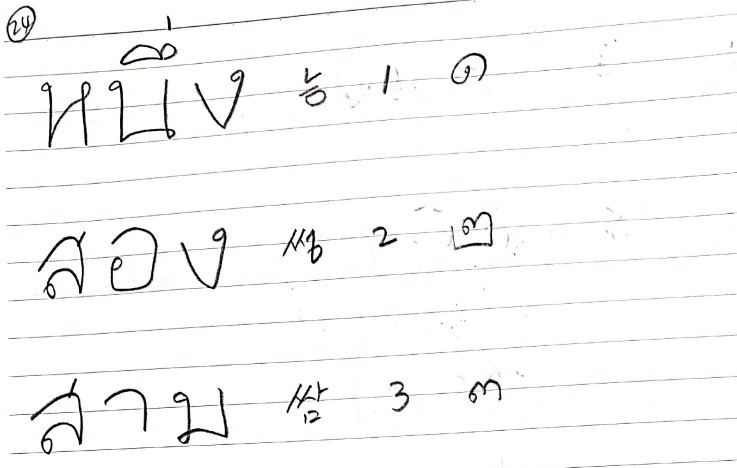 24
หนึ่ง 능 1 ๑
สอง 썽 2 ๒
สาม 쌈 3 ๓